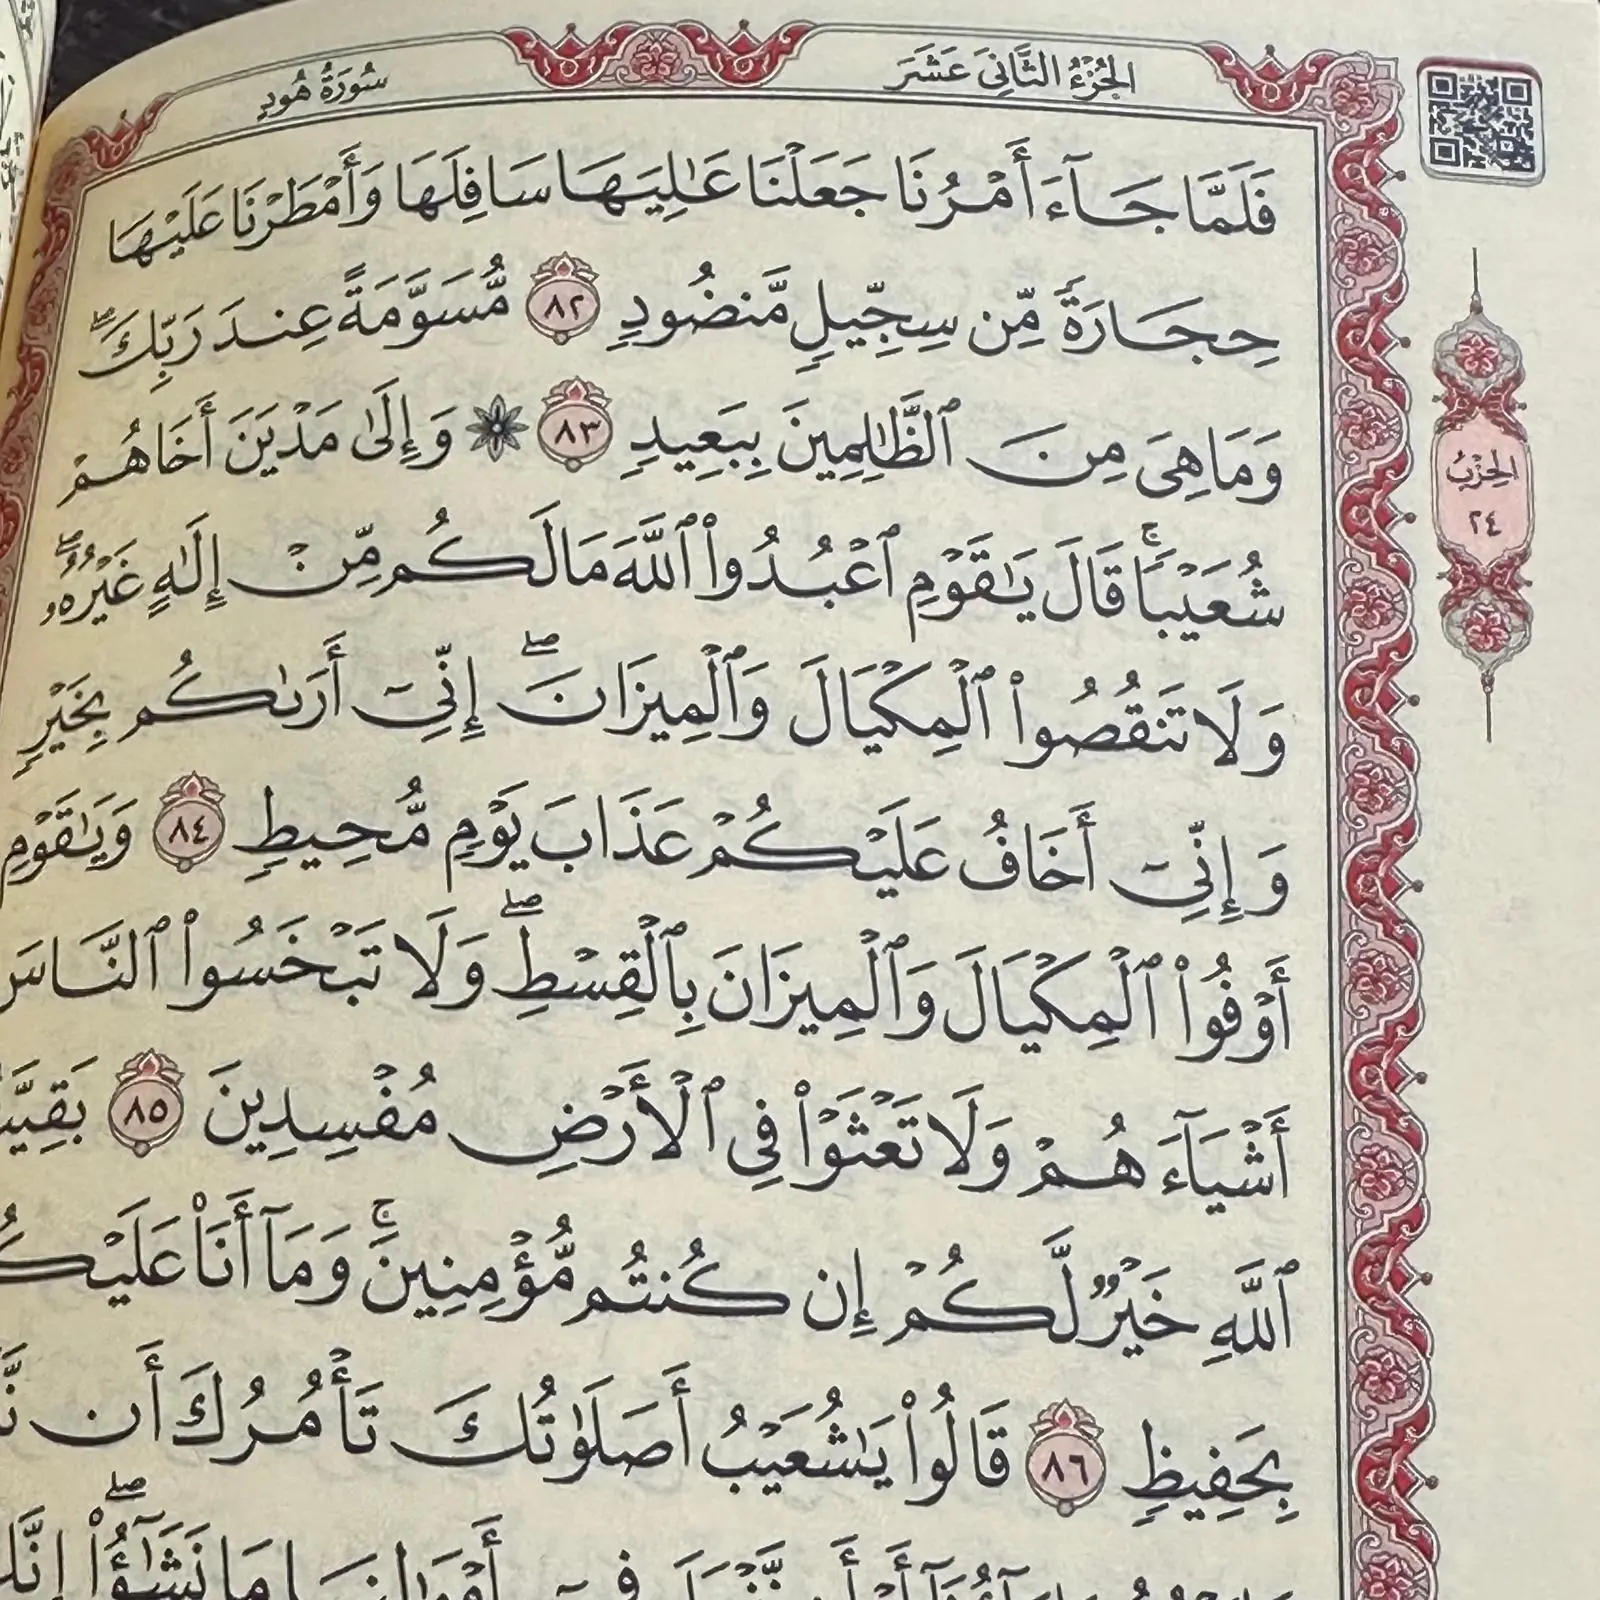 سُورَةُ هُودٍ
الجُزْءُ الثَّانِيَ عَشَرَ
فَلَمَّا جَآءَ أَمْرُنَا جَعَلْنَا عَٰلِيَهَا سَافِلَهَا وَأَمْطَرْنَا عَلَيْهَا
حِجَارَةً مِّن سِجِّيلٍ مَّنضُودٍ ٨٢ مُّسَوَّمَةً عِندَ رَبِّكَۖ
وَمَا هِيَ مِنَ ٱلظَّٰلِمِينَ بِبَعِيدٍ ٨٣ ۞ وَإِلَىٰ مَدْيَنَ أَخَاهُمْ
شُعَيْبًاۚ قَالَ يَٰقَوْمِ ٱعْبُدُوا۟ ٱللَّهَ مَا لَكُم مِّنْ إِلَٰهٍ غَيْرُهُۥۖ
وَلَا تَنقُصُوا۟ ٱلْمِكْيَالَ وَٱلْمِيزَانَۖ إِنِّىٓ أَرَىٰكُم بِخَيْرٍ
وَإِنِّىٓ أَخَافُ عَلَيْكُمْ عَذَابَ يَوْمٍ مُّحِيطٍ ٨٤ وَيَٰقَوْمِ
أَوْفُوا۟ ٱلْمِكْيَالَ وَٱلْمِيزَانَ بِٱلْقِسْطِۖ وَلَا تَبْخَسُوا۟ ٱلنَّاسَ
أَشْيَآءَهُمْ وَلَا تَعْثَوْا۟ فِى ٱلْأَرْضِ مُفْسِدِينَ ٨٥
ٱللَّهِ خَيْرٌ لَّكُمْ إِن كُنتُم مُّؤْمِنِينَۚ وَمَآ أَنَا۠
بِحَفِيظٍ ٨٦ قَالُوا۟ يَٰشُعَيْبُ أَصَلَوٰتُكَ تَأْمُرُكَ أَن
مَا نَشَٰٓؤُا۟ۖ
الحِزْبُ
٢٤